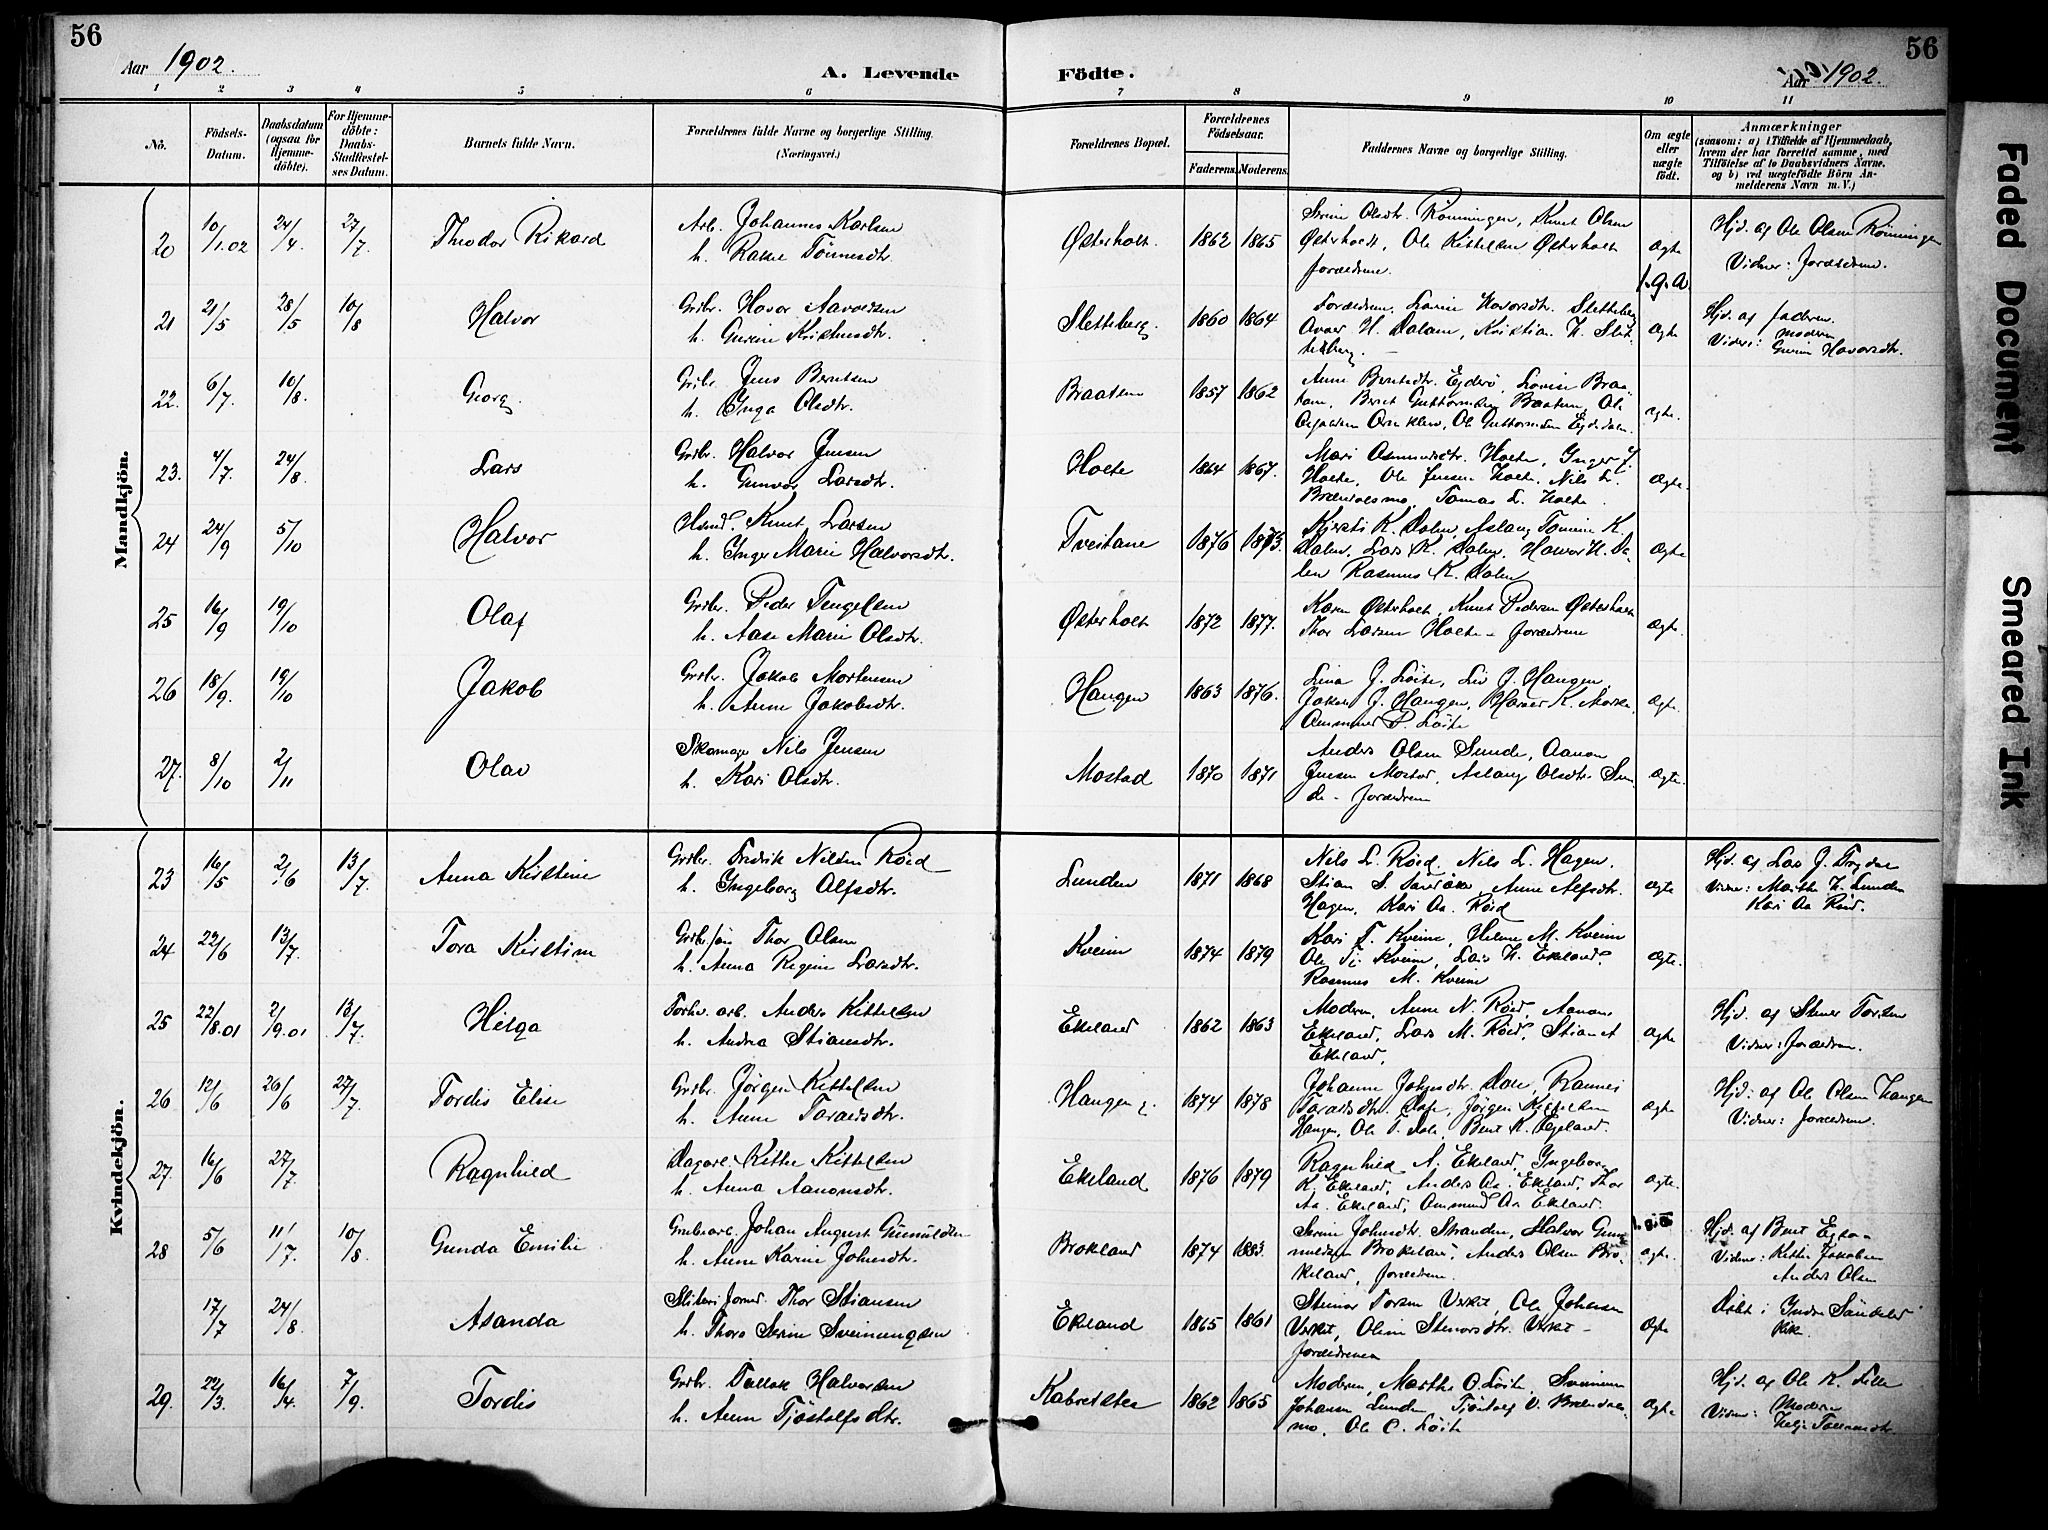 56
Aar 1902.
A. Levende
Födte.
Aar 1902.
56
1 2 3 4 5 6 7 8 9 10 11
No.
Födsels-Datum.
Daabsdatum (ogsaa for Hjemmedöbte).
For Hjemmedöbte: Daabs-Stadfæstelses Datum.
Barnets fulde Navn.
Forældrenes fulde Navne og borgerlige Stilling. (Næringsvei.)
Forældrenes Bopæl.
Forældrenes Födselsaar.
Faderens. Moderens.
Faddernes Navne og borgerlige Stilling.
Om ægte eller uægte födt.
Anmærkninger
(saasom: a) i Tilfælde af Hjemmedaab, hvem der har forrettet samme, med Tilföielse af to Daabsvidners Navne, og b) ved uægtefödte Börn Anmelderens Navn m. V.)
Mandkjön.
20 10/1.02 24/4. 27/7. Theodor Rikard
Arb. Johannes Karlsen
h. Tönnesdtr.
Østerholt. 1862 1865
Olsdtr. Rönningen, Knut Olsen
Østerholt, Ole Kittelsen Østerholt
forældrene
ægte
Hjd. af Ole Olsen Rönningen
Vidner: Forældrene.
21 21/5 28/5 10/8 Halvor
Grbr. Hovor
h. Gurine
Sletteberg. 1860 1864
Forældrene, Havorsdtr. Sletteberg
H. Dalane, Kristian H. Slet-
teberg.
ægte
Hjd. af faderen.
Vidner: moderen
Havorsdtr.
22. 6/7. 10/8. Georg.
Grbr. Jens Berntsen
h. Inga Olsdtr.
Braaten 1857 1862
Anne Berntsdtr. Egderö, Lovise Braa-
ten, Bernt Guttormsen Braaten, Ole
Ole Guttormsen
ægte.
23. 4/7. 24/8. Lars
Grbr. Halvor Jensen
h. Gunvor Larsdtr.
Holte 1864 1867.
Mari Osmundsdtr. Holte, Inger J.
Holte, Ole Jensen Holte, Nils L.
Brændalsmo, Tomas L. Holte.
ægte.
24 24/9 5/10 Halvor
Knut Larsen
h. Inger Marie Halvorsdtr.
Tveitane 1876 1873.
Kjersti K. Dalen, Aslaug Tomine K.
Dalen, Lars K. Dalen, Halvor H. Da-
len Rasmus K. Dalen
ægte
25 16/9 19/10 Olaf
Grbr. Peder Tengelsen
h. Aase Marie Olsdtr.
Østerholt 1872 1877.
Karen Østerholt, Knut Pedersen Østerholt
Thor Larsen Holte – forældrene
ægte.
26 18/9. 19/10 Jakob
Grbr. Jakob Mortensen
h. Anne Jakobsdtr.
Haugen 1863 1876.
Lina J. Löite, Liv J. Haugen,
Jakob J. Haugen, K.
P. Löite
ægte.
27. 8/10 2/11 Olav
Skomager Nils Jensen
h. Kari Olsdtr.
Mostad 1870 1871
Anders Olsen Sunde, Aanon
Jensen Mostad, Aslaug Olsdtr. Sun-
de – forældrene
ægte.
Kvindekjön.
23 16/5 2/6 13/7. Anna Kirstine
Grbr. Fredrik Nilsen Röed
h. Ingeborg Alfsdtr.
Lunden 1871 1868
Nils L. Röed, Nils L. Hagen,
Stian S. Anne Alfsdtr.
Hagen, Kari Aa. Röed
ægte
Hjd. af Lars J.
Vidner: Marthe H. Lunden
Kari Aa Röed.
24 22/6 13/7. Tora Kirstine
Thor Olsen
h. Anna Regine Larsdtr.
Kveim 1874 1879
Kari T. Kveim, Helene M. Kveim
Ole T. Kveim, Lars H. Ekeland.
Rasmus M. Kveim
ægte.
25 22/8.01 2/9.01 13/7. Helga
arb. Anders Kittelsen
h. Andrea Stiansdtr.
Ekeland 1862 1863
Moderen, Anne N. Röed, Aanon
Ekeland, Lars M. Röed, Stian A
Ekeland,
ægte
Hjd. af Torsen
Vidner: Forældrene.
26 12/6 26/6 27/7. Tordis Elise
Grbr. Jörgen Kittelsen
h. Anne Taraldsdtr.
Haugen 1874 1878
Johanne Johnsdtr. Dale,
Taraldsdtr. Dale, Jörgen Kittelsen
Haugen, Ole T. Dale, Bent K. Egeland.
ægte
Hjd. af Ole Olsen Haugen
Vidner: Forældrene.
27. 16/6 27/7. Ragnhild
Dagarb. Kittel Kittelsen
h. Anna Aanonsdtr.
Ekeland 1876 1879
Ragnhild A. Ekeland, Ingeborg
K. Ekeland, Anders Aa. Ekeland, Thor
Aa. Ekeland, Ommund Aa Ekeland.
ægte.
28 5/6 11/7. 10/8. Gunda Emilie
Grubearb. Johan August
h. Anne Karine Johnsdtr.
Brokland 1874 1883.
Johnsdtr. Stranden, Halvor
Brokeland, Anders Olsen Bro-
keland, forældrene.
ægte.
Hjd. af Bent
Vidner: Kittil Jakobsen
Anders Olsen
17/7 24/8. Asanda
Thor Stiansen
h. Thora Serine
Ekeland 1865 1861
Steinar Torsen Verket, Ole Johnsen
Verket, Oline Stenarsdtr. Verket –
forældrene
ægte
Döbt i Indre Söndeled
Kirke.
29. 22/3. 16/4. 7/9. Tordis
Grbr. Tallak Halvorsen
h. Anne Tjöstolfsdtr.
1862 1865
Moderen, Marthe O. Löite,
Johansen Lunden, Tjöstolf V. Brændals-
mo, Ole C. Löite
ægte
Hjd. af Ole K. Lille
Vidner: Moderen
Helje Tallaksdtr.
Faded Document
Smeared Ink